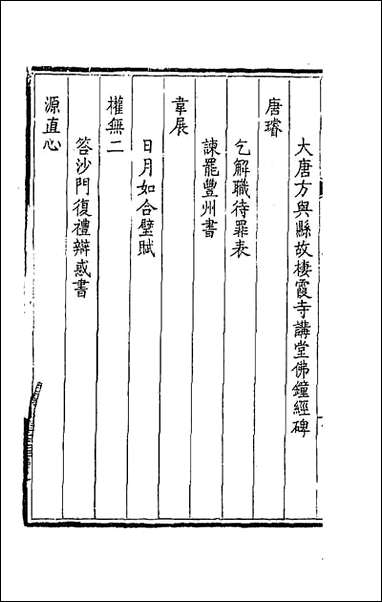 大唐方與縣故棲霞寺講堂佛鐘經碑
唐璿
乞解職待罪表
諫罷豐州書
韋展
日月如合壁賦
權無二
答沙門復禮辯惑書
源直心